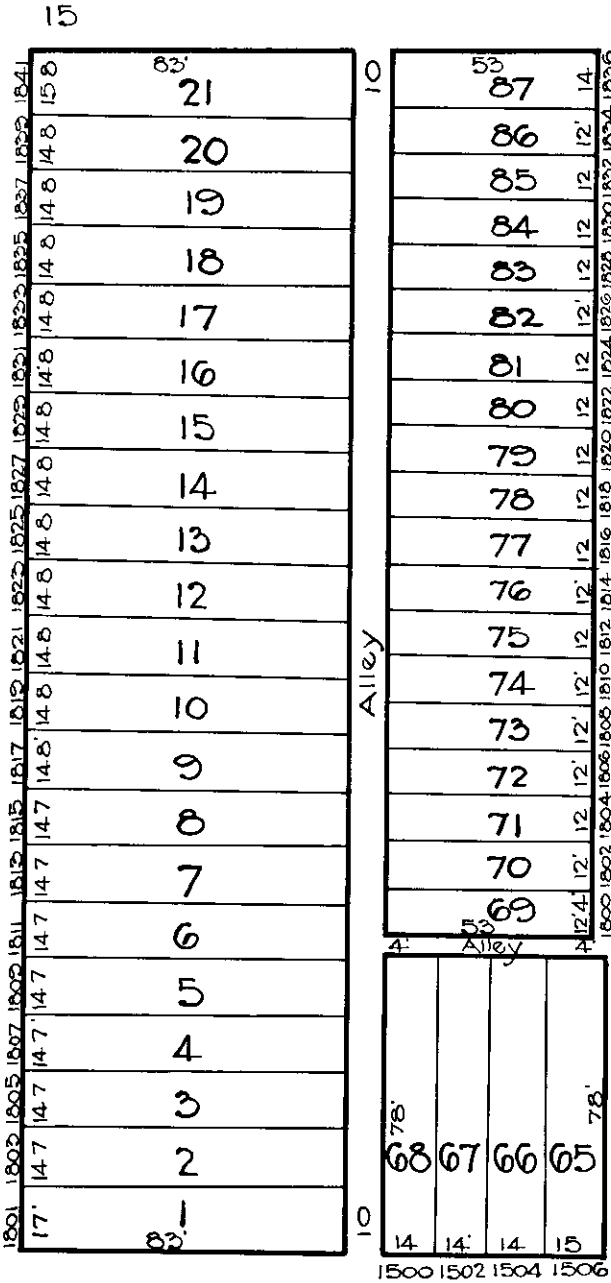 15
83'
1841 15 8 21
1839 14 8 20
1837 14 8 19
1835 14 8 18
1833 14 8 17
1831 14'8 16
1829 14 8 15
1827 14 8 14
1825 14 8 13
1823 14 8 12
1821 14 8 11
1819 14 8 10
1817 14.8' 9
1815 14 7 8
1813 14 7 7
1811 14 7 6
1809 14 7 5
1807 14 7' 4
1805 14 7 3
1803 14 7 2
1801 17' 1
83'
10
Alley
10
53
87 14 1836
86 12' 1834
85 12 1832
84 12 1830
83 12 1828
82 12' 1826
81 12 1824
80 12 1822
79 12 1820
78 12 1818
77 12 1816
76 12' 1814
75 12 1812
74 12' 1810
73 12' 1808
72 12' 1806
71 12 1804
70 12' 1802
69 12'4" 1800
53
4' Alley 4
78' 78'
68 67 66 65
14 14' 14 15
1500 1502 1504 1506